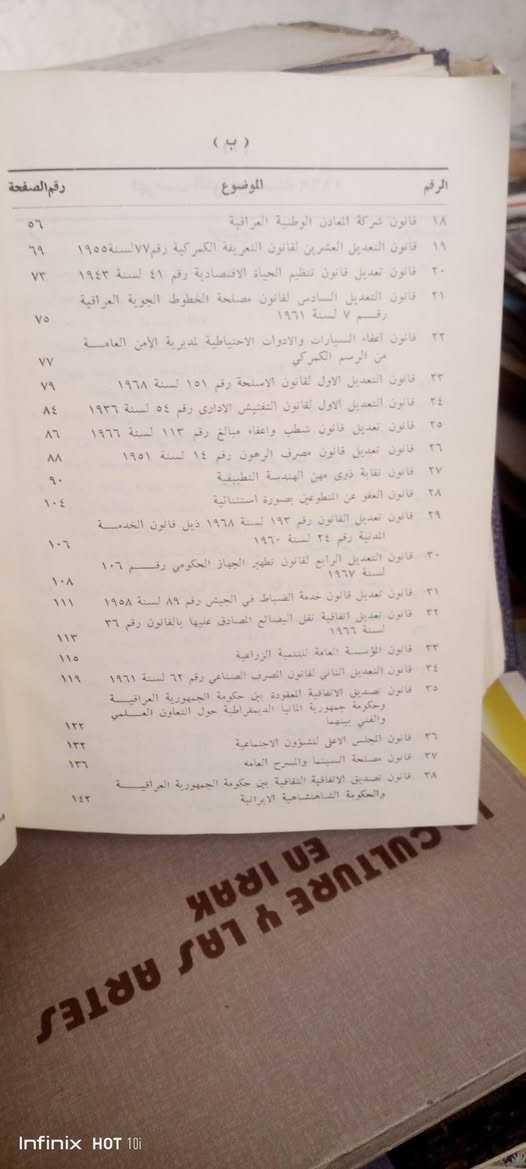 ( ب )
الرقم الموضوع رقم الصفحة
١٨ قانون شركة المعادن الوطنية العراقية ٥٦
١٩ قانون التعديل العشرين لقانون التعريفة الكمركية رقم ٧٧ لسنة ١٩٥٥ ٦٩
٢٠ قانون تعديل قانون تنظيم الحياة الاقتصادية رقم ٤١ لسنة ١٩٤٣ ٧٣
٢١ قانون التعديل السادس لقانون مصلحة الخطوط الجوية العراقية
رقم ٧ لسنة ١٩٦١ ٧٥
٢٢ قانون أعفاء السيارات والادوات الاحتياطية لمديرية الأمن العامة
من الرسم الكمركي ٧٧
٢٣ قانون التعديل الاول لقانون الاسلحة رقم ١٥١ لسنة ١٩٦٨ ٧٩
٢٤ قانون التعديل الاول لقانون التفتيش الادارى رقم ٥٤ لسنة ١٩٣٦ ٨٤
٢٥ قانون تعديل قانون شطب واعفاء مبالغ رقم ١١٣ لسنة ١٩٦٦ ٨٦
٢٦ قانون تعديل قانون مصرف الرهون رقم ١٤ لسنة ١٩٥١ ٨٨
٢٧ قانون نقابة ذوى مهن الهندسة التطبيقية ٩٠
٢٨ قانون العفو عن المتطوعين بصورة استثنائية ١٠٤
٢٩ قانون تعديل القانون رقم ١٩٣ لسنة ١٩٦٨ ذيل قانون الخدمة
المدنية رقم ٢٤ لسنة ١٩٦٠ ١٠٦
٣٠ قانون التعديل الرابع لقانون تطهير الجهاز الحكومي رقم ١٠٦
لسنة ١٩٦٧ ١٠٨
٣١ قانون تعديل قانون خدمة الضباط في الجيش رقم ٨٩ لسنة ١٩٥٨ ١١١
٣٢ قانون تعديل اتفاقية نقل البضائع المصادق عليها بالقانون رقم ٣٦
لسنة ١٩٦٦ ١١٣
٣٣ قانون المؤسسة العامة للتنمية الزراعية ١١٥
٣٤ قانون التعديل الثاني لقانون المصرف الصناعي رقم ٦٢ لسنة ١٩٦١ ١١٩
٣٥ قانون تصديق الاتفاقية المعقودة بين حكومة الجمهورية العراقية
وحكومة جمهورية المانيا الديمقراطية حول التعاون العلمي
والفني بينهما ١٢٢
٣٦ قانون المجلس الاعلى للشؤون الاجتماعية ١٣٢
٣٧ قانون مصلحة السينما والمسرح العامه ١٣٦
٣٨ قانون تصديق الاتفاقية الثقافية بين حكومة الجمهورية العراقية
والحكومة الشاهنشاهية الايرانية ١٤٢
LA CULTURE Y LAS ARTES
EN IRAK
Infinix HOT 10i